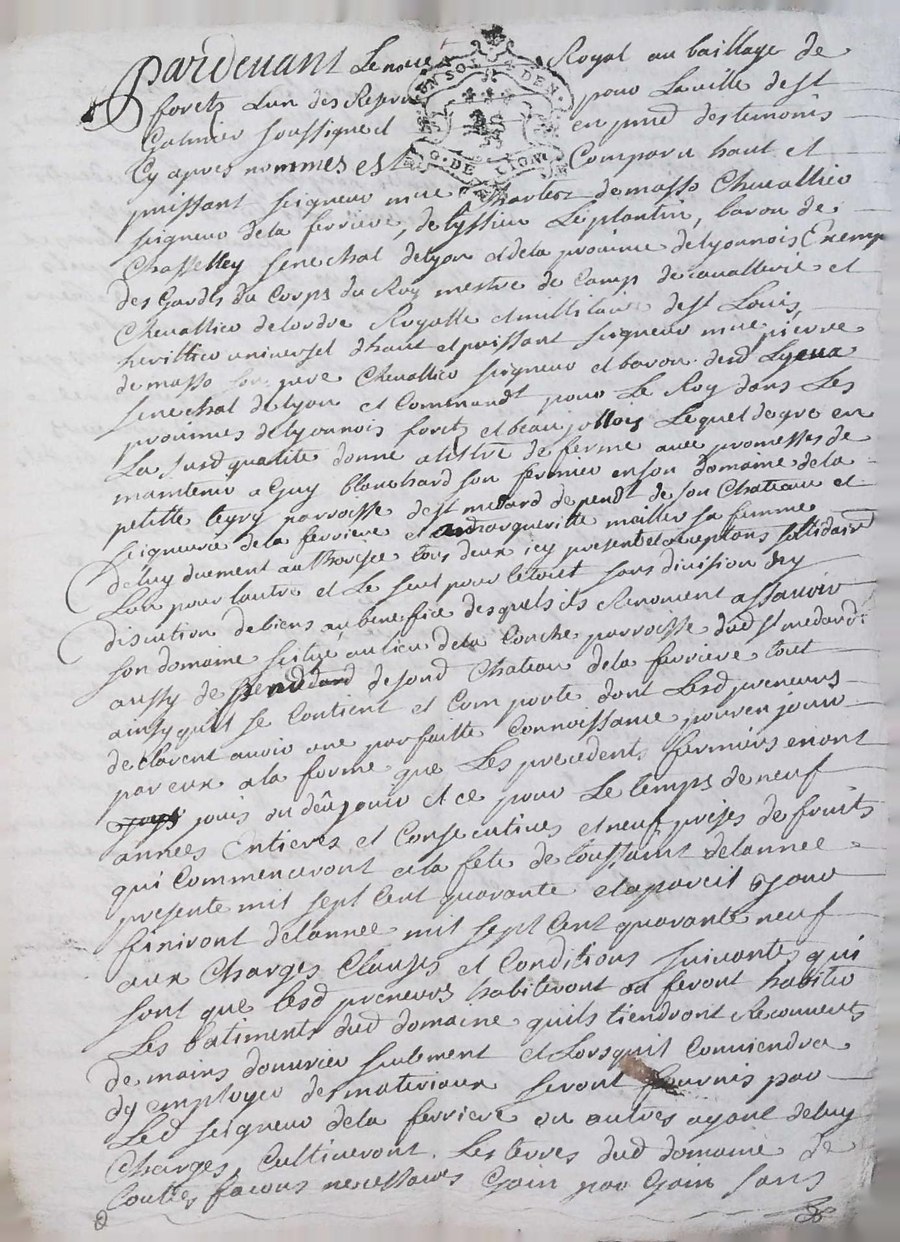 Pardevant Le no.re Royal au baillage de
forets Lun des Reser pour La ville de st
Galmier soussigné et en pnce des temoins
Cy apres nommes est Comparu haut et
puissant seigneur mre Charles de masso Chevallier
seigneur de la ferriere, de lyssieu Le plantin, baron de
Chasselley senechal de lyon et de la province de lyonnois Exempt
des Gardes du Corps du Roy mestre de Camp de cavallerie et
Chevallier de lordre Royalle et millitaire de st Louis,
herittier universel dhaut et puissant seigneur mre pierre
de masso son pere Chevallier seigneur et baron desd Lyeux
senechal de lyon et Commandt pour Le Roy dans Les
provinces de lyonnois forets et beaujollois Lequel de gre en
La susd qualité donne a tistre de ferme avec promesses de
maintenir a Guy blanchard son fermier en son domaine de la
petitte parroisse de st medard de pendt de son Chateau et
seigneurie de la ferriere et a margueritte maillet sa femme
de luy duement authorisee tous deux icy present et acceptans sollidairt
Lun pour lautre et Le seul pour Letout sans division ny
discution de biens au benefice desquels ils Renoncent assavoir
son domaine scitué au lieu de la Conche parroisse dud st medard
aussy de pendt de sond Chateau de la ferriere tout
ainsy quil se Contient et Comporte dont Lesd preneurs
declarent avoir une parfaitte Connoissance pour en jouir
par eux a la forme que Les precedents fermiers en ont
jouis ou deû jouir et ce pour Le temps de neuf
années Entieres et Consecutives et neuf prises de fruits
qui Commenceront a la fête de toussaint de lannee
presente mil sept Cent quarante et a pareil jour
finiront de lannee mil sept Cent quarante neuf
aux Charges Clauses et Conditions suivantes qui
sont que lesd preneurs habiteront ou feront habiter
Les batiments dud domaine quils tiendront Recouverts
de mains douvrier seulement et Lorsquil Conviendra
dy employer des materiaux seront fournis par
Led seigneur de la ferriere ou autres ayant de luy
Charges, Cultiveront Les terres dud domaine de
toutes façons necessaires Gain par Gain sans